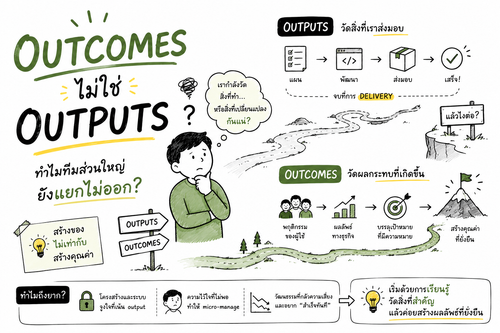 OUTCOMES
ไม่ใช่
OUTPUTS
?
ทำไมทีมส่วนใหญ่
ยังแยกไม่ออก?
สร้างของ
ไม่เท่ากับ
สร้างคุณค่า
OUTPUTS
OUTCOMES
เรากำลังวัด
สิ่งที่ทำ...
หรือสิ่งที่เปลี่ยนแปลง
กันแน่?
OUTPUTS วัดสิ่งที่เราส่งมอบ
แผน
พัฒนา
ส่งมอบ
เสร็จ!
จบที่การ DELIVERY
แล้วไงต่อ?
OUTCOMES วัดผลกระทบที่เกิดขึ้น
พฤติกรรม
ของผู้ใช้
ผลลัพธ์
ทางธุรกิจ
บรรลุเป้าหมาย
ที่มีความหมาย
สร้างคุณค่า
ที่ยั่งยืน
ทำไมถึงยาก?
โครงสร้างและระบบ
จูงใจที่เน้น output
ความไว้ใจที่ไม่พอ
ทำให้ micro-manage
วัฒนธรรมที่กลัวความเสี่ยง
และอยาก "สำเร็จทันที"
เริ่มด้วยการเรียนรู้
วัดสิ่งที่สำคัญ
แล้วค่อยสร้างผลลัพธ์ที่ยั่งยืน